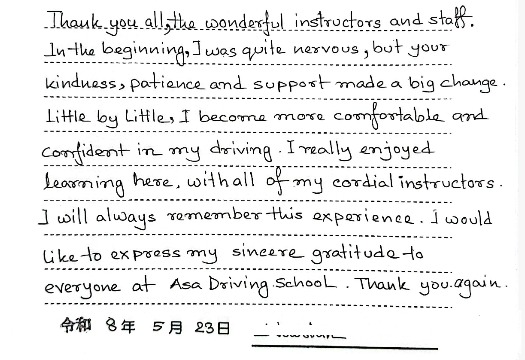 Thank you all, the wonderful instructors and staff.
In the beginning, I was quite nervous, but your
kindness, patience and support made a big change.
Little by Little, I become more comfortable and
confident in my driving. I really enjoyed
learning here, with all of my cordial instructors.
I will always remember this experience. I would
like to express my sincere gratitude to
everyone at Asa Driving School. Thank you again.
令和 8年 5月 23日